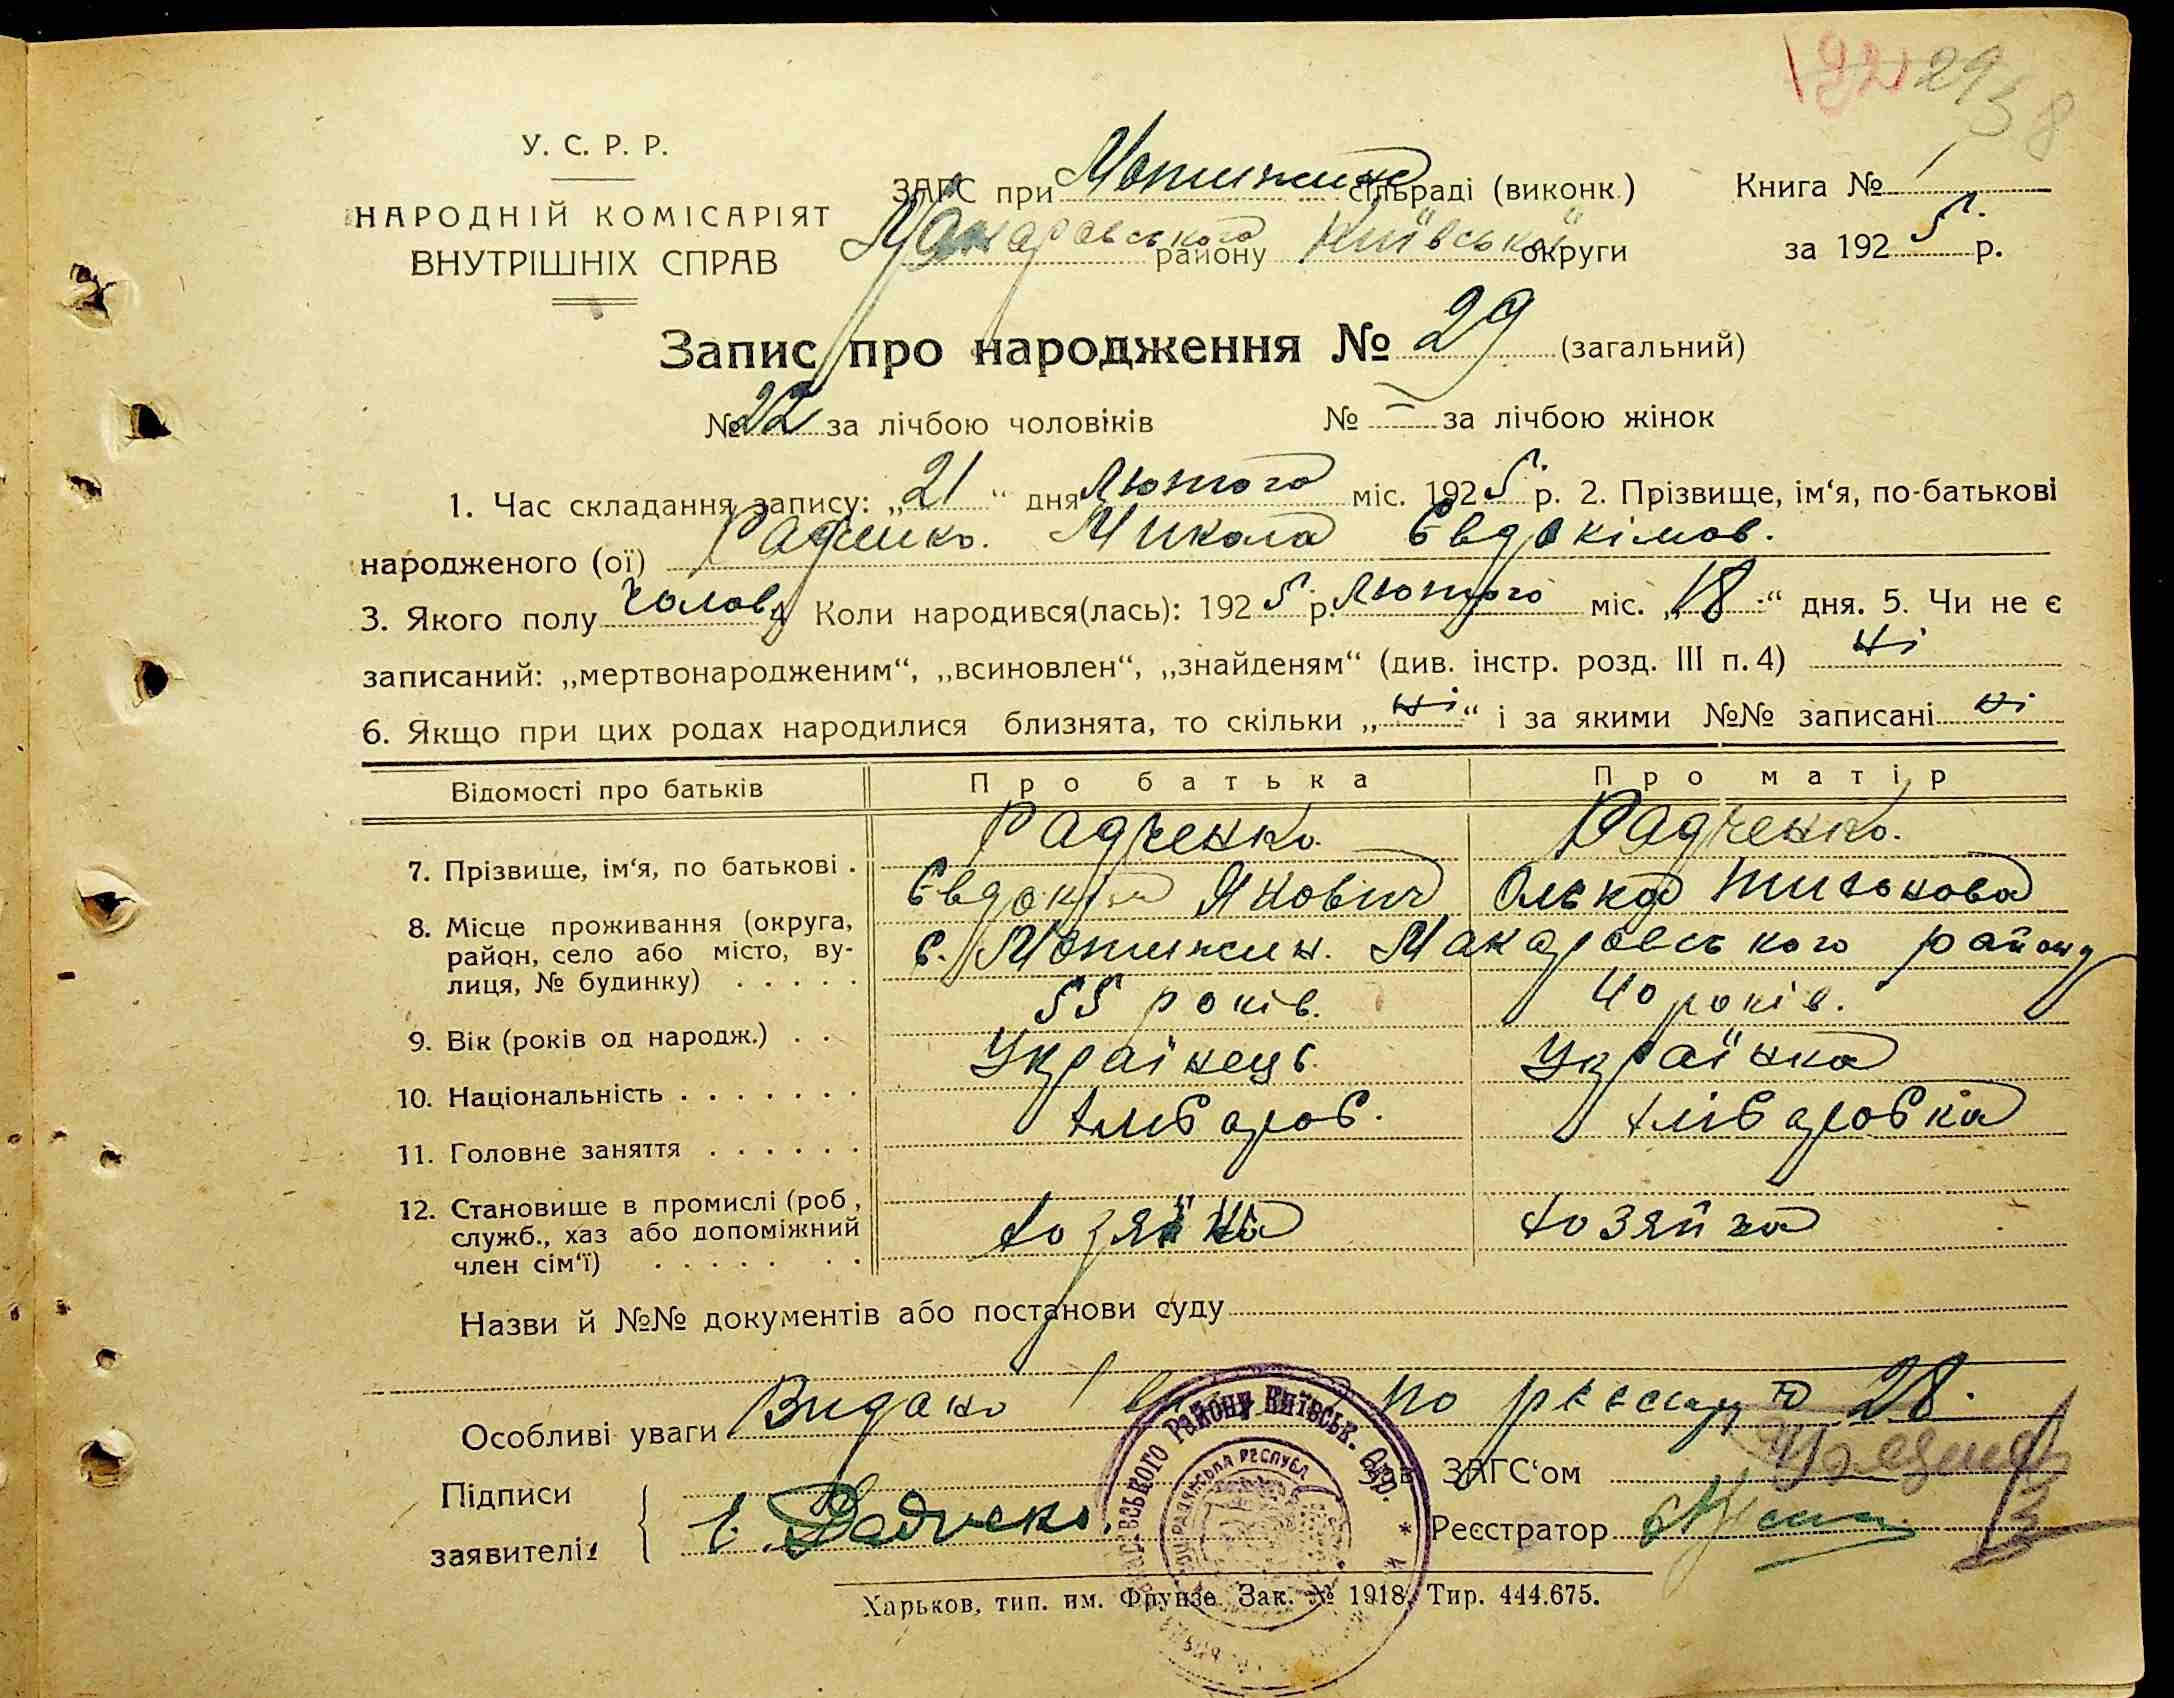 192 29 38
У. С. Р. Р.
НАРОДНІЙ КОМІСАРІЯТ
ВНУТРІШНІХ СПРАВ
ЗАГС при Мотижин сільраді (виконк.)
Макаровського району Київської округи
Книга № 1
за 1925 р.
Запис про народження № 29 (загальний)
№ 22 за лічбою чоловіків № — за лічбою жінок
1. Час складання запису: „21“ дня Лютого міс. 1925 р. 2. Прізвище, ім‘я, по-батькові
народженого (ої) Радченко. Микола Євдокімов.
3. Якого полу Чолов. 4 Коли народився(лась): 1925 р. Лютого міс. „18“ дня. 5. Чи не є
записаний: „мертвонародженим“, „всиновлен“, „знайденям“ (див. інстр. розд. III п. 4) ні
6. Якщо при цих родах народилися близнята, то скільки „ні“ і за якими №№ записані ні
Відомості про батьків Про батька Про матір
7. Прізвище, ім‘я, по батькові . Радченко. Радченко.
Євдокім Якович Олька Титовова
8. Місце проживання (округа,
район, село або місто, ву-
лиця, № будинку) . . . . .
с. Мотижин. Макаровського району
9. Вік (років од народж.) . . 55 років. 40 років.
10. Національність . . . . . . . Українець Українка
11. Головне заняття . . . . . . хлібороб. хліборобка
12. Становище в промислі (роб,
служб., хаз або допоміжний
член сім‘ї) . . . . . . .
хозяйка хозяйка
Назви й №№ документів або постанови суду
Особливі уваги Видано по 28.
Підписи
заявителів
Є. Радченко.
Зав ЗАГС‘ом
Реєстратор
РАЙОНУ КИЇВСЬК. ОКР.
РАДЯНСЬКА РЕСПУБЛ
Харьков, тип. им. Фрунзе Зак. № 1918. Тир. 444.675.